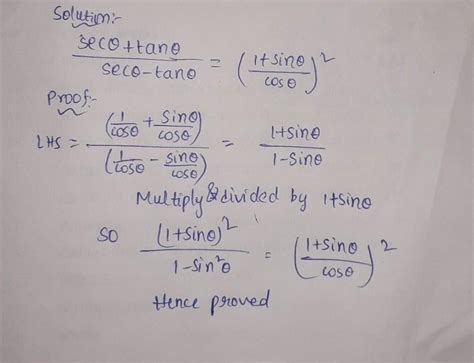 Solution:-
secθ+tanθ / secθ-tanθ = (1+sinθ / cosθ)²
Proof:-
LHS = (1/cosθ + sinθ/cosθ) / (1/cosθ - sinθ/cosθ) = 1+sinθ / 1-sinθ
Multiply & divided by 1+sinθ
SO (1+sinθ)² / 1-sin²θ = (1+sinθ / cosθ)²
Hence proved